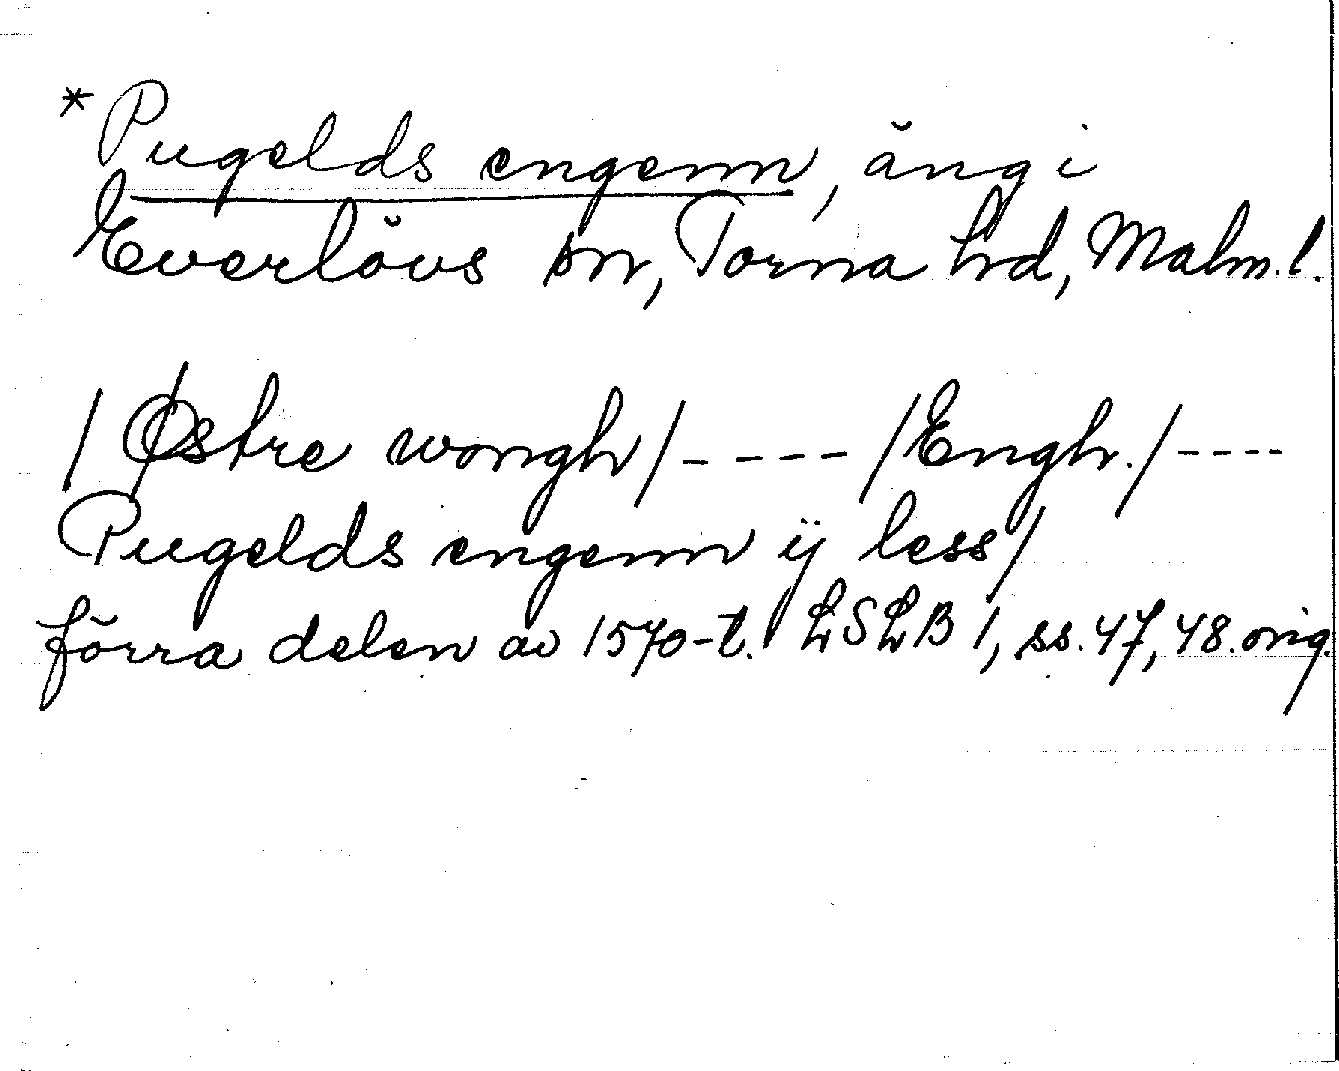 *Pugelds engenn, äng i
Everlövs sn, Torna hd, Malm. l.
/Østre wongh/ - - - - /Engh./ - - - -
Pugelds engenn ij less/
förra delen av 1570-t. LSLB 1, ss. 47, 48. orig.